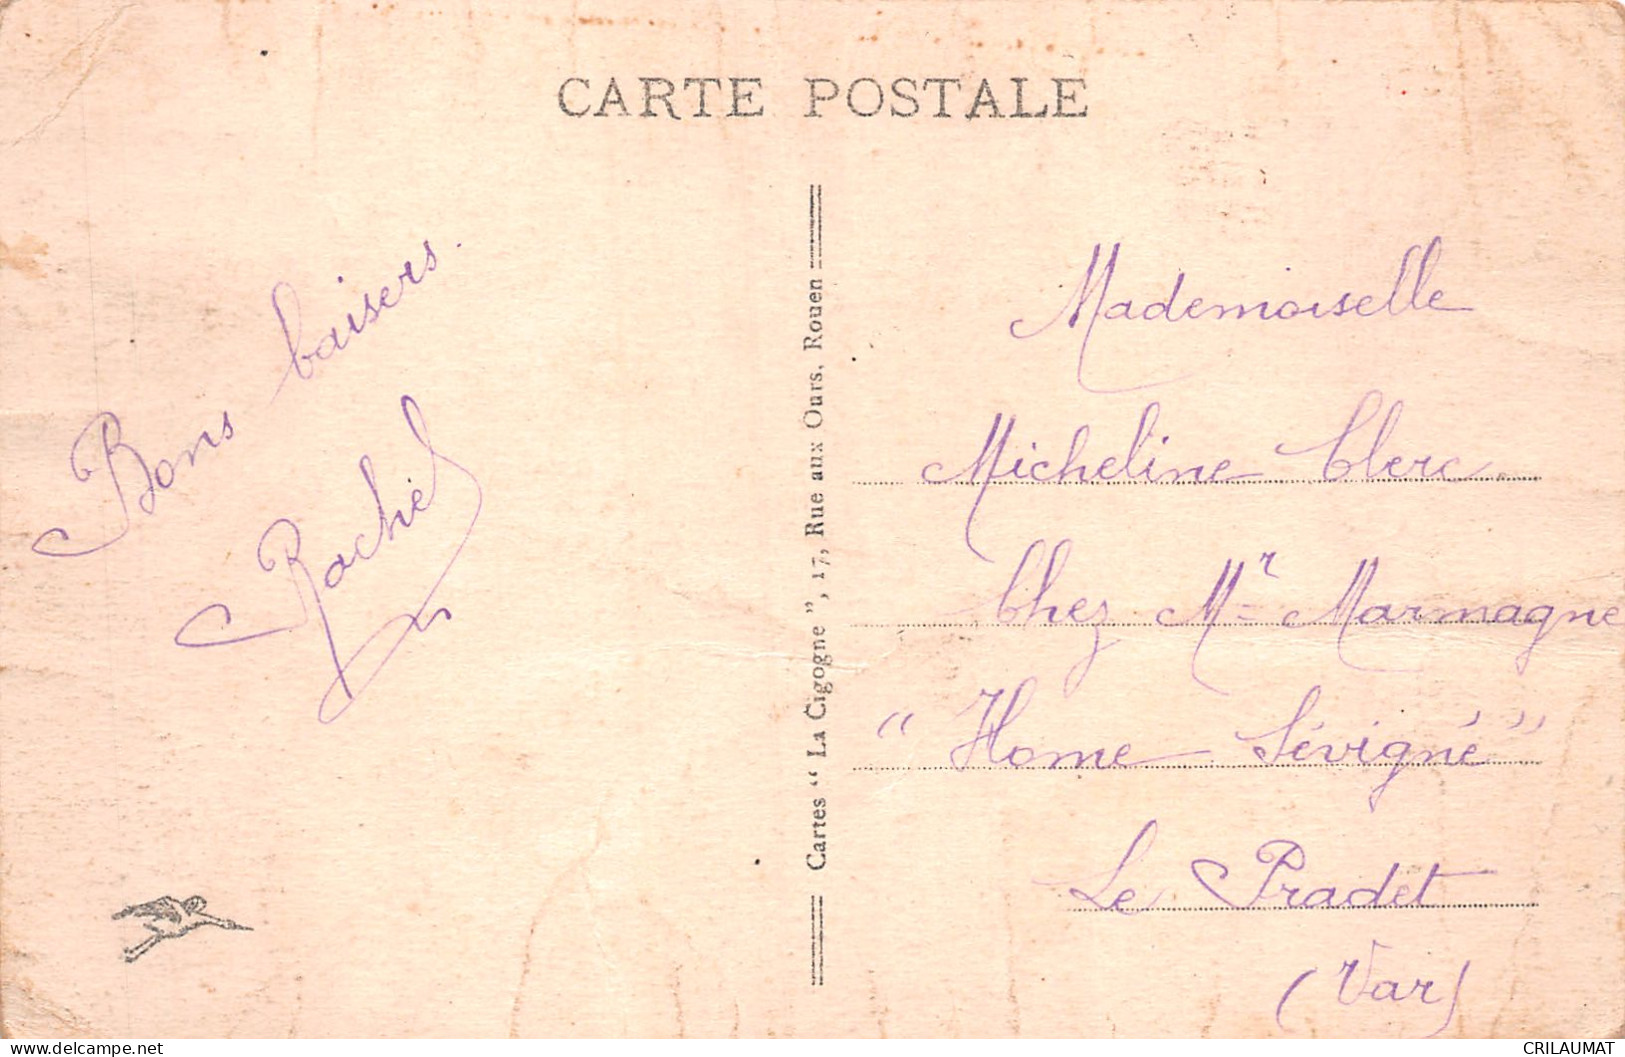 CARTE POSTALE
Bons baisers.
Rachel
Cartes " La Cigogne ", 17, Rue aux Ours, Rouen
Mademoiselle
Micheline Clerc
Chez Mr Marmagne
" Home Sévigné "
Le Pradet
(Var)
CRILAUMAT